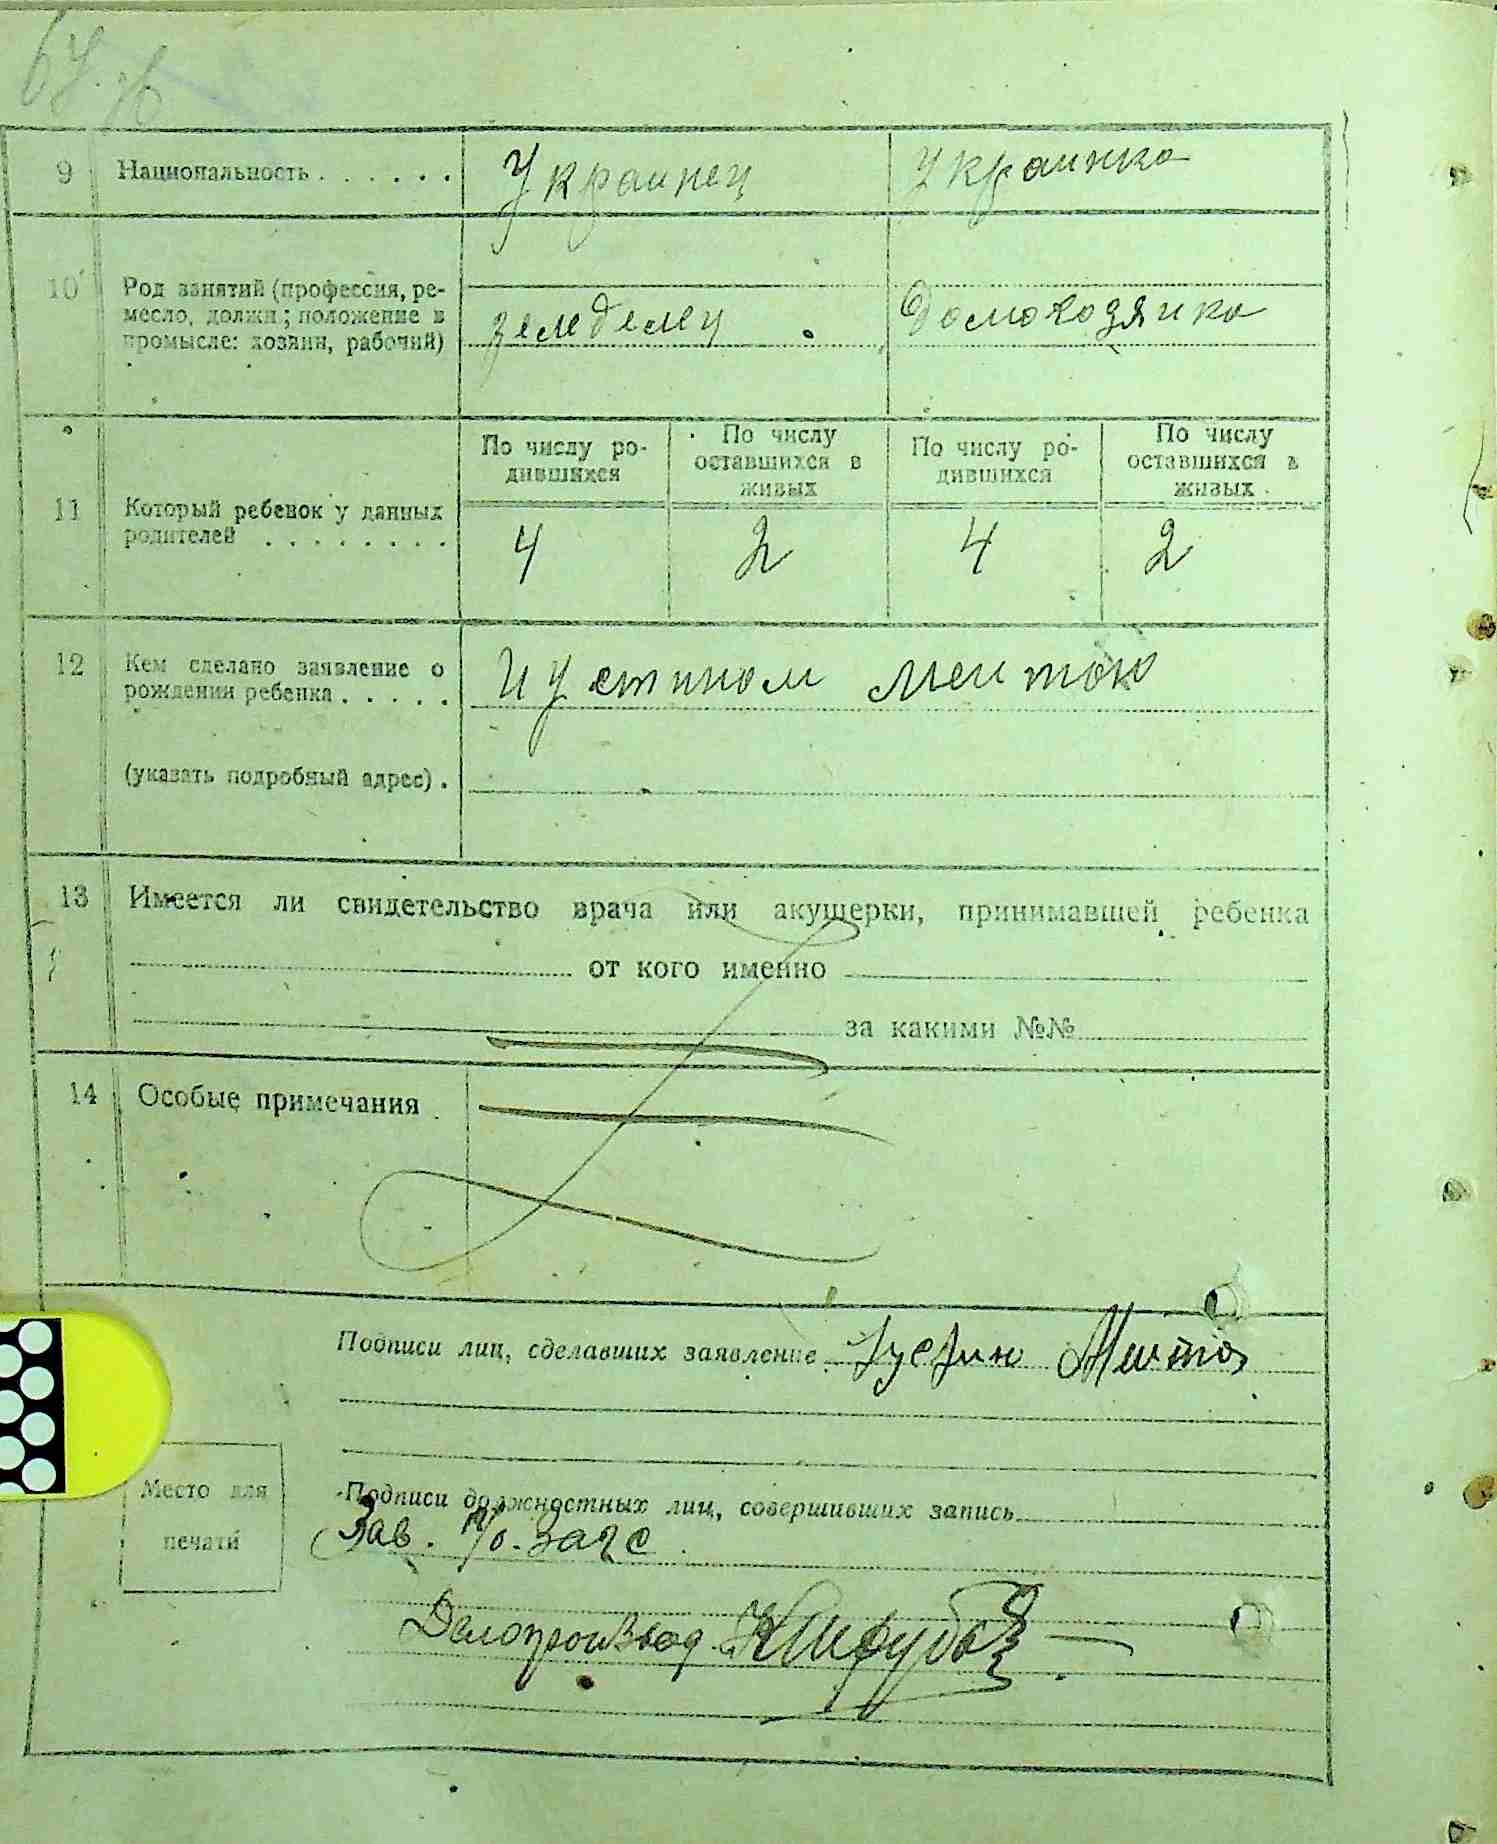 9 Национальность . . . . . . Украинец Украинка
10 Род занятий (профессия, ре-
месло, должн; положение в
промысле: хозяин, рабочий)
земделец Домохозяика
По числу ро-
дившихся
По числу
оставшихся в
живых
По числу ро-
дившихся
По числу
оставшихся в
живых
11 Который ребенок у данных
родителей . . . . . . . .
4 2 4 2
12 Кем сделано заявление о
рождении ребенка . . . . .
(указать подробный адрес) .
13 Имеется ли свидетельство врача или акушерки, принимавшей ребенка
от кого именно
за какими №№
14 Особые примечания
Подписи лиц, сделавших заявление
Место для
печати
Подписи должностных лиц, совершивших запись
Зав.
Делопроизвод